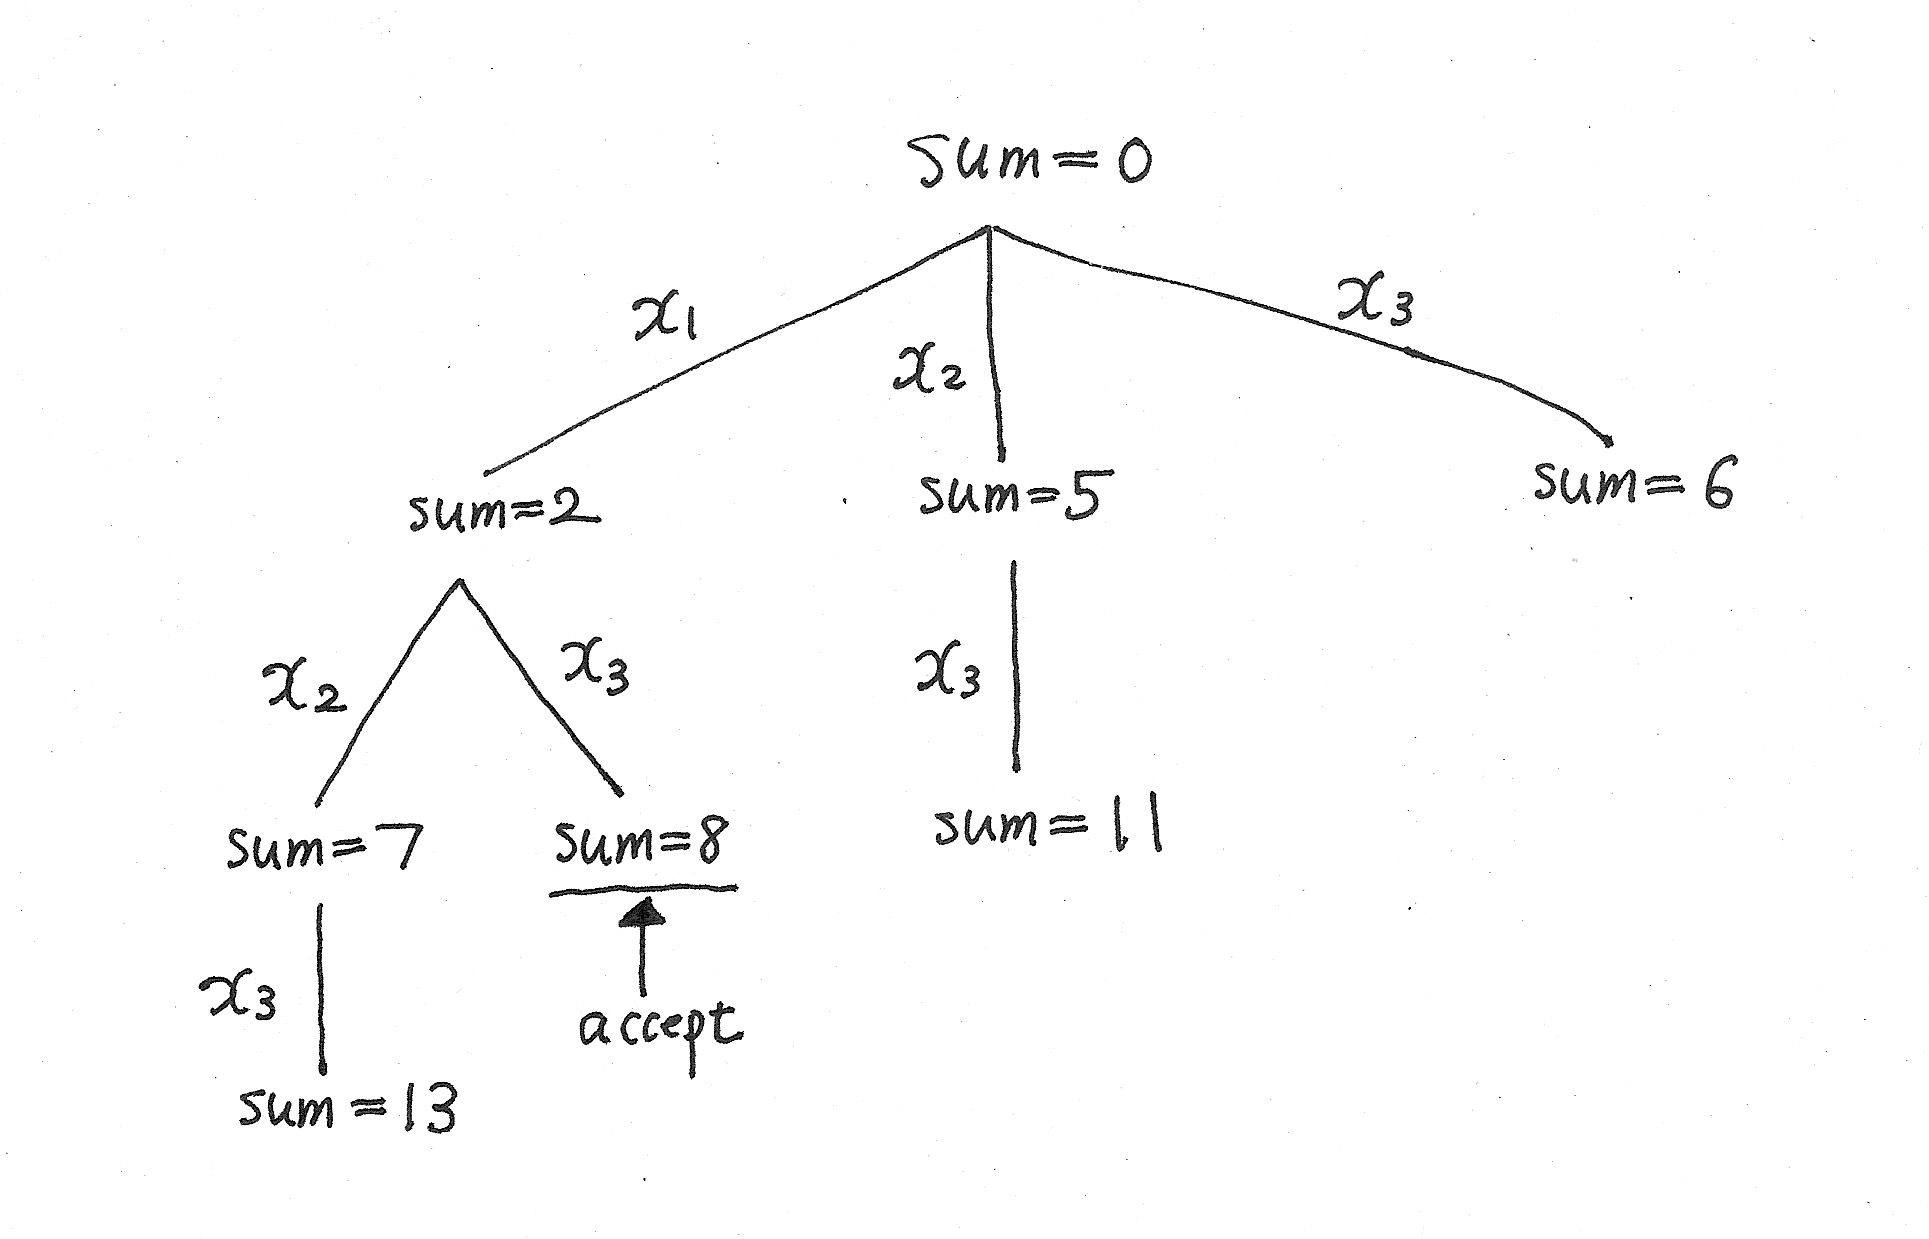 sum=0
x1
x2
x3
sum=2
sum=5
sum=6
x2
x3
x3
sum=7
sum=8
sum=11
x3
accept
sum=13